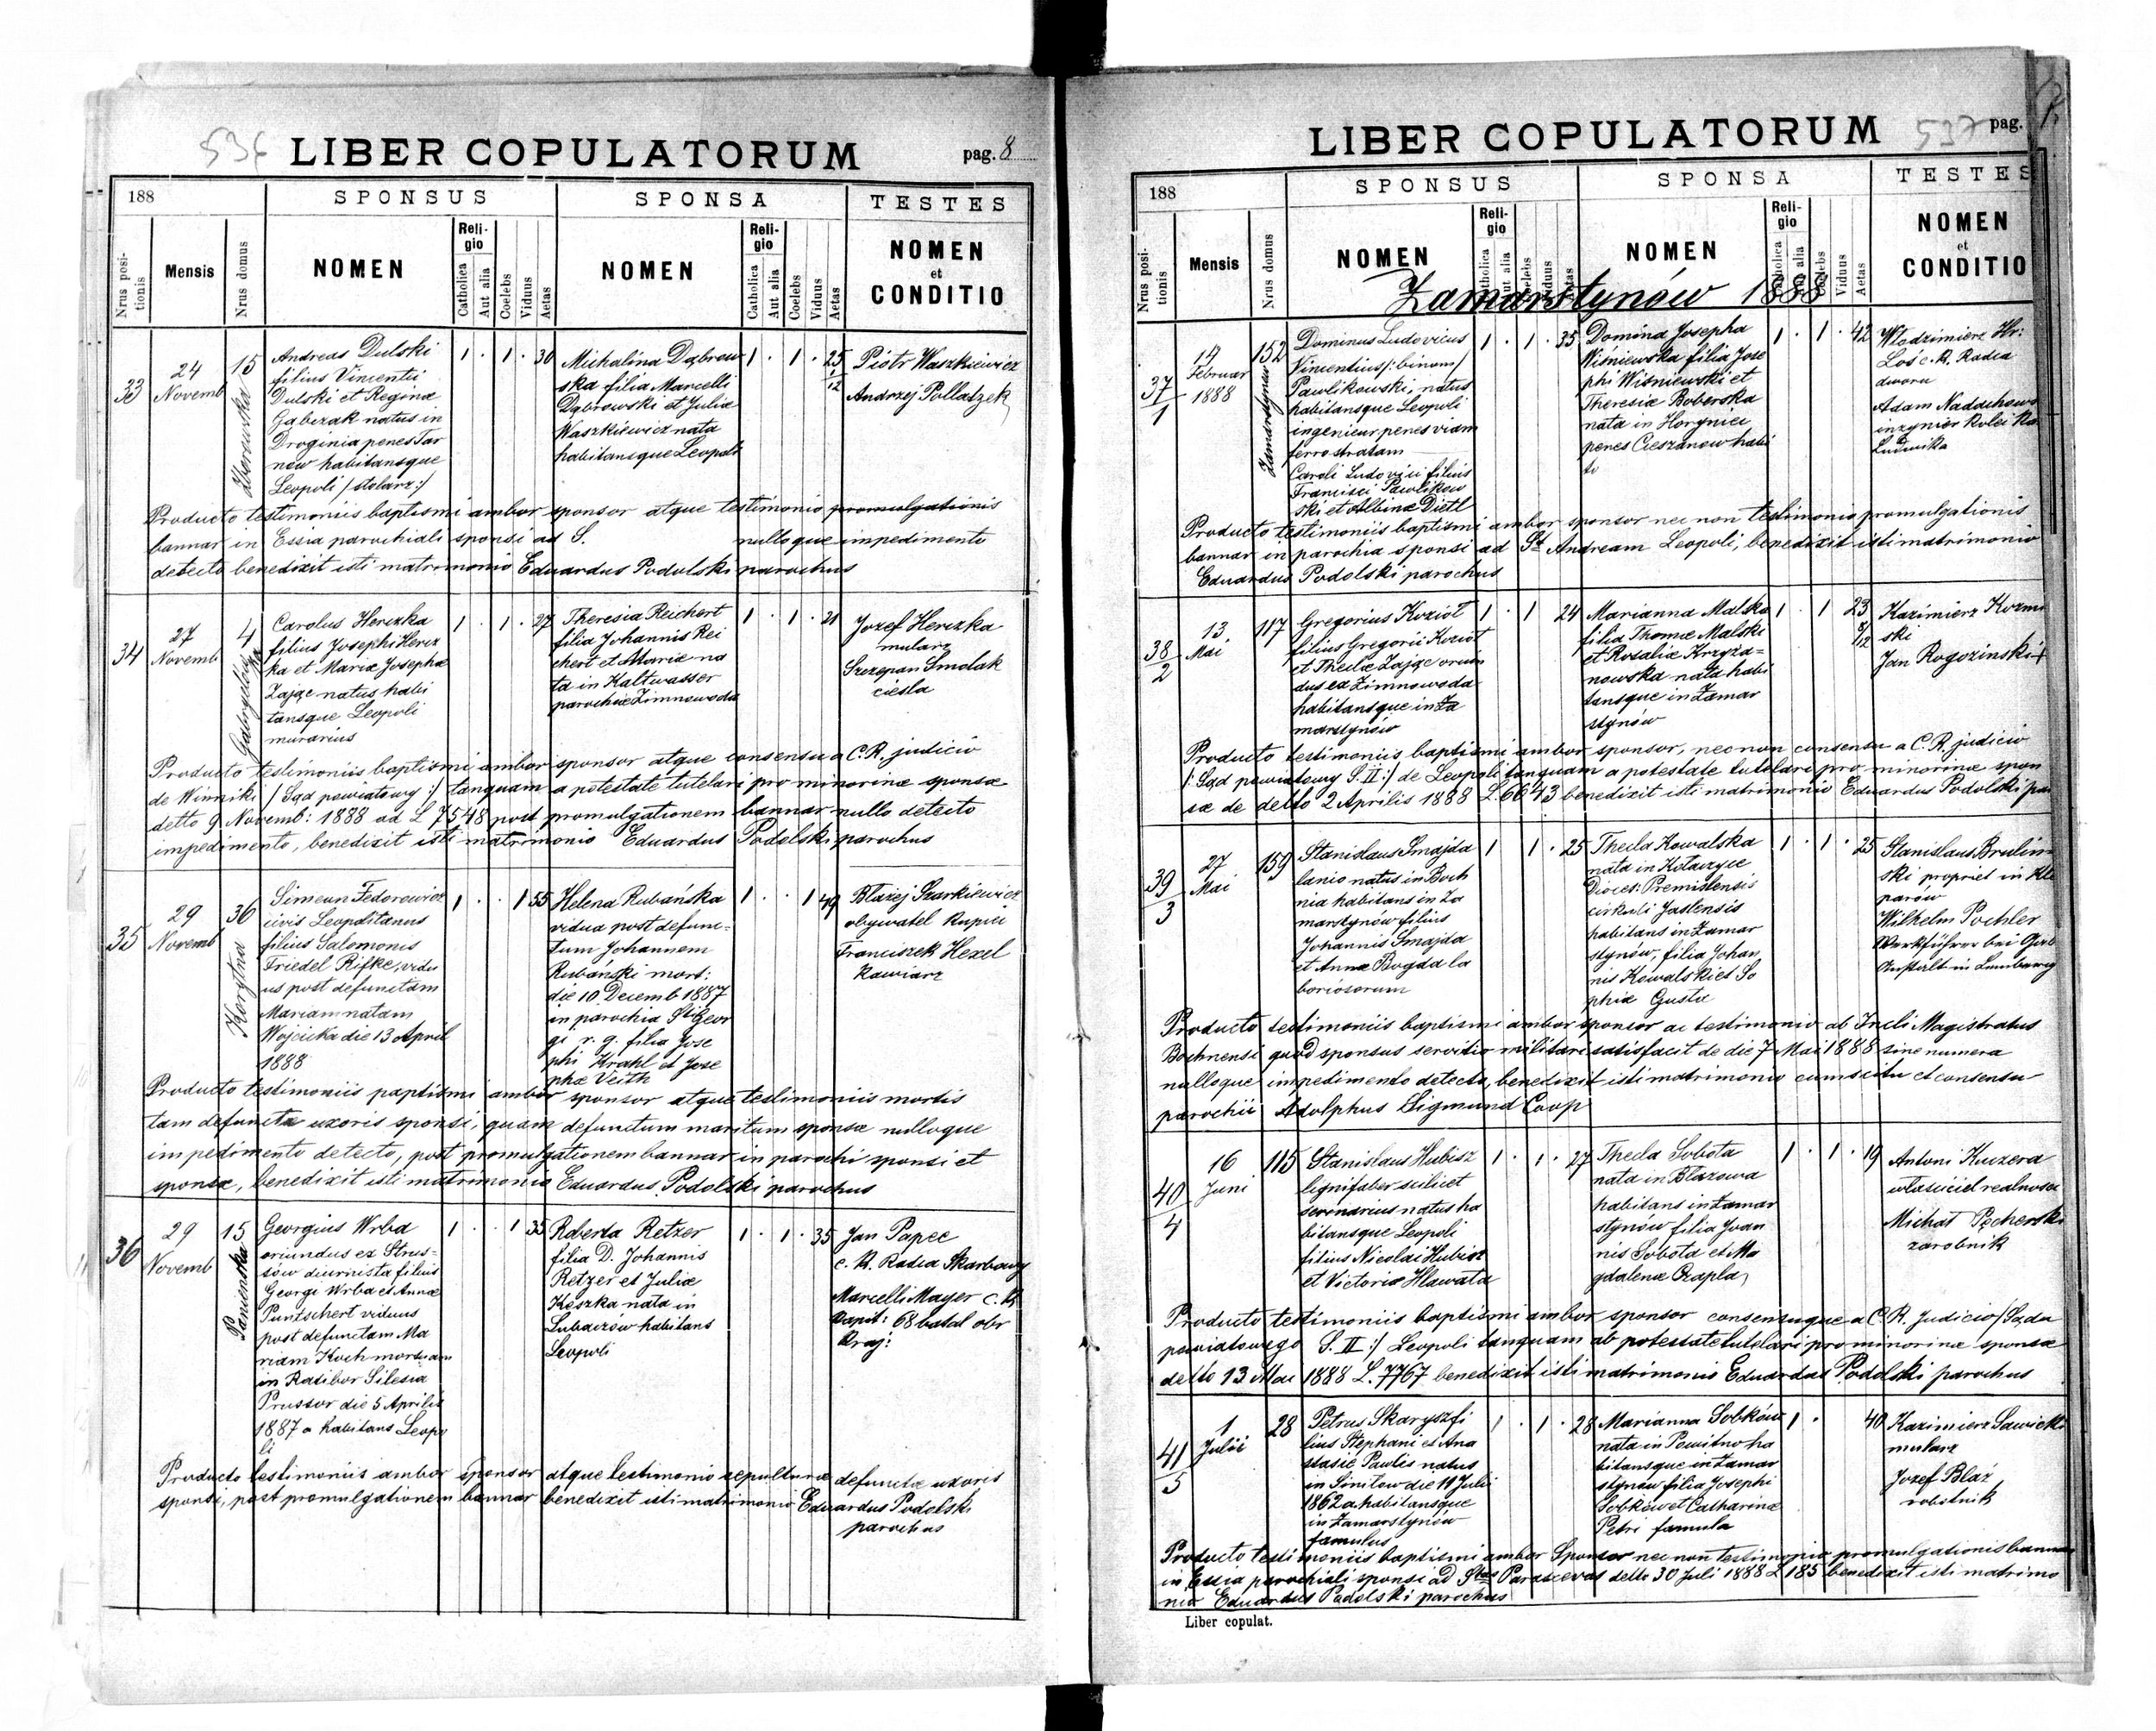 536 LIBER COPULATORUM pag. 8
188 SPONSUS SPONSA TESTES
Nrus positionis Mensis Nrus domus NOMEN Religio Catholica Aut alia Coelebs Viduus Aetas NOMEN Religio Catholica Aut alia Coelebs Viduus Aetas NOMEN et CONDITIO
33
24
Novemb
15
Andreas Dulski
filius Vincentii
Dulski et Reginæ
Gąbczak natus in
Droginia penes Tar
now habitansque
Leopoli /stolarz:/
1 . 1 . 30
Michalina Dąbrow
ska filia Marcelli
Dąbrowski et Juliæ
Waszkiewicz nata
habitansque Leopoli
1 . 1 . 25
Piotr Waszkiewicz
Andrzej Pollatzek
Producto testimoniis baptismi ambor sponsor atque testimonio promulgationis
bannar in Essia parochiali sponsi ad S. nulloque impedimento
detecto benedixit isti matrimonio Eduardus Podolski parochus
34
27
Novemb
4
Carolus Herezka
filius Josephi Herez
ka et Mariæ Josepha
Zając natus habi
tansque Leopoli
murarius
1 . 1 . 27
Theresia Reichert
filia Johannis Rei
chert et Mariæ na
ta in Kaltwasser
parochiæ Zimnowoda
1 . 1 . 21
Jozef Herezka
mularz
Szczepan Smolak
ciesla
Producto testimoniis baptismi ambor sponsor atque consensu a C.R. judicio
de Winniki /Sąd powiatowy:/ tanquam a potestate tutelari pro minorinæ sponsæ
detto 9 Novemb: 1888 ad L 7548 post promulgationem bannar nullo detecto
impedimento, benedixit isti matrimonio Eduardus Podolski parochus
35
29
Novemb
36
Simeon Fedorowicz
civis Leopolitanus
filius Salomonis
Friedel Rifke, vidu
us post defunctam
Mariam natam
Wojcicka die 13 April
1888
1 . . 1 55
Helena Rubańska
vidua post defunc-
tum Johannem
Rubański mort:
die 10 Decemb 1887
in parochia Sti Geor
gi r. g. filia Jose
phi Krahl et Jose
phæ Veith
1 . . 1 49
Błażej Szarkiewicz
obywatel kupiec
Franciszek Hexel
kawiarz
Producto testimoniis paptismi ambor sponsor atque testimoniis mortis
tam defunctæ uxoris sponsi, quam defunctum maritum sponsæ nulloque
impedimento detecto, post promulgationem bannar in parochi sponsi et
sponsæ, benedixit isti matrimonio Eduardus Podolski parochus
36
29
Novemb
15
Panieńska
Georgius Wrba
oriundus ex Strus-
sów diurnista filius
Georgi Wrba et Annæ
Puntschert viduus
post defunctam Ma
riam Koch mortuam
in Ratibor Silesia
Prussor die 5 Aprilis
1887 a habitans Leopo
li
1 . . 1 35
Roberta Retzer
filia D. Johannis
Retzer et Juliæ
Koszka nata in
Lubaczow habitans
Leopoli
1 . 1 . 35
Jan Papee
c. k. Radca Skarbowy
Marcelli Mayer c. k.
kapit: 68 batal obr
kraj:
Producto testimoniis ambor sponsor atque testimonio sepulturæ defunctæ uxoris
sponsi, post promulgationem bannar benedixit isti matrimonio Eduardus Podolski
parochus
LIBER COPULATORUM 537 pag.
188 SPONSUS SPONSA TESTES
Nrus positionis Mensis Nrus domus NOMEN Religio Catholica Aut alia Coelebs Viduus Aetas NOMEN Religio Catholica Aut alia Coelebs Viduus Aetas NOMEN et CONDITIO
Zamarstynów 1888
37
1
Februar
1888
152
Zamarstynów
Dominus Ludovicus
Vincentius /:binom/
Pawlikowski, natus
habitansque Leopoli
ingenieur penes viam
ferrostratam
Caroli Ludovici filius
Francisci Pawlikow
ski et Albinæ Dietl
1 . 1 . 35
Domina Josepha
Wiśniewska filia Jose
phi Wiśniewski et
Theresiæ Boberska
nata in Horyniec
penes Cieszanow habi
ta
1 . 1 . 42
Włodzimierz Hr:
Łoś c. k. Radca
dworu
Adam
inzynier kolei Ka
Ludwika
Producto testimoniis baptismi ambor sponsor nec non testimonio promulgationis
bannar in parochia sponsi ad St Andream Leopoli, benedixit isti matrimonio
Eduardus Podolski parochus
38
2
13
Mai
117
Gregorius Kozioł
filius Gregorii Kozioł
et Theclæ Zając oriun
dus ex Zimnowoda
habitansque in Za
marstynów
1 . 1 24
Marianna Malska
filia Thomæ Malski
et Rosaliæ Krzyża=
nowska nata habi
tansque in Zamar
stynów
1 . 1 23
8/12
Kazimierz Kozmi
ski
Jan Rogozinski
Producto testimoniis baptismi ambor sponsor, nec non consensu a C.R. judicio
/:Sąd powiatowy S. II:/ de Leopoli tanquam a potestate tutelari pro minorinæ spon
sæ de detto 2 Aprilis 1888 L. 6643 benedixit isti matrimonio Eduardus Podolski
39
3
27
Mai
159
Stanislaus Smajda
lanio natus in Boch
nia habitans in Za
marstynów filius
Johannis Smajda
et Annæ Bogda la
boriosorum
1 1 . 25
Thecla Kowalska
nata in Kołaczyce
Dioces: Premislensis
cirkuli Jaslensis
habitans in Zamar
stynów, filia Johan
nis Kowalski et So
phiæ Gusta
1 . 1 . 25
Stanislaus Brulin
ski propriet in Kle
parów
Wilhelm Pochler
Werkführer bei Gas
Anstalt in Lemberg
Producto testimoniis baptismi ambor sponsor ac testimonio ab Incli Magistratus
Bochnensi quod sponsus servitio militari satisfacit de die 7 Mai 1888 sine numera
nulloque impedimento detecto, benedixit isti matrimonio cum scitu et consensu
parochii Adolphus Sigmund Coop
40
4
16
Juni
115
Stanislaus Hubisz
lignifaber scilicet
natus ha
bitansque Leopoli
filius Nicolai Hubisz
et Victoriæ Hławata
1 . 1 . 27
Thecla Sobota
nata in Błazowa
habitans in Zamar
stynów filia Joan
nis Sobota et Ma
gdalenæ Czapla
1 . 1 . 19
Antoni Kuczera
własciciel realnosci
Michał Pecherski
zarobnik
Producto testimoniis baptismi ambor sponsor consensuque a C.R. Judicio /Sądu
powiatowego S. II:/ Leopoli tanquam ab potestate tutelari pro minorinæ sponsæ
detto 13 Mai 1888 L. 7767 benedixit isti matrimonio Eduardus Podolski parochus
41
5
1
Julii
28
Petrus Skarysz fi
lius Stephani et Ana
stasiæ Pawlis natus
in Sinitow die 11 Julii
1862 a habitansque
in Zamarstynów
famulus
1 . 1 . 28
Marianna Sobków
nata in Powitno ha
bitansque in Zamar
stynów filia Josephi
Sobków et Catharinæ
Petri famula
1 . 40
Kazimierz Sawicki
mularz
Jozef Bláz
robotnik
Producto testimoniis baptismi ambor Sponsor nec non testimonio promulgationis bannar
in Essia parochiali sponsi ad Stas Parascevas detto 30 Juli 1888 L 185 benedixit isti matrimo
nio Eduardus Podolski parochus
Liber copulat.